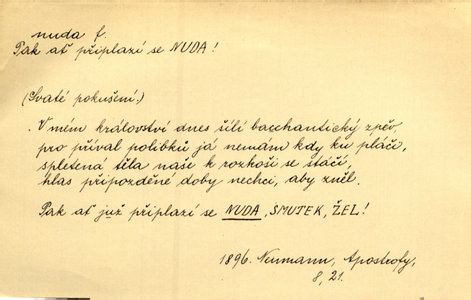 nuda f.
Pak ať připlazí se NUDA!
(Svaté pokušení.)
V mém království dnes šílí bacchantický zpěv,
pro příval polibků já nemám kdy ku pláči,
spletená těla naše k rozkoši se stáčí,
hlas připozděné doby nechci, aby zněl.
Pak ať již připlazí se NUDA, SMUTEK, ŽEL!
1896. Neumann, Apostrofy,
8, 21.